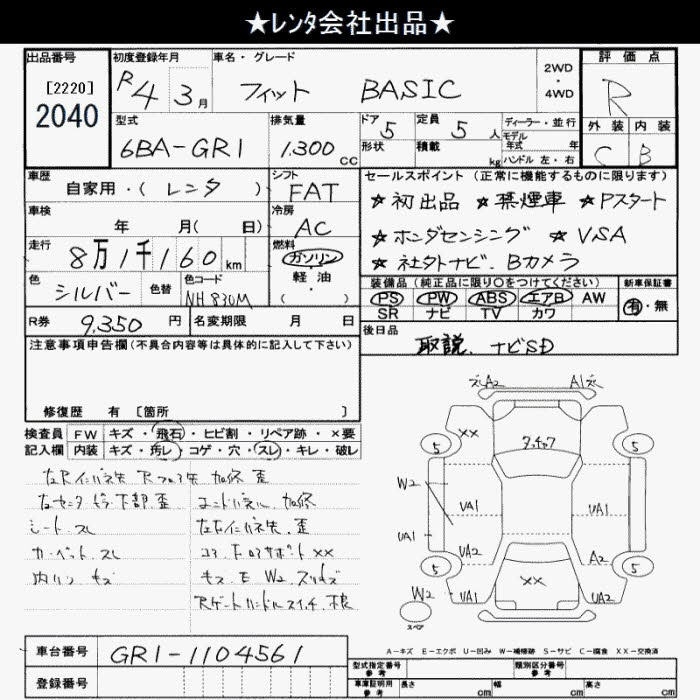 ★レンタ会社出品★
出品番号
[2220]
2040
初度登録年月
R4 3月
車名・グレード
フィット BASIC
2WD
・
4WD
評価点
R
外装 内装
C B
型式
6BA-GR1
排気量
1,300 cc
ドア 5
形状
定員 5 人
積載 kg
ディーラー・並行
モデル
年式 年
ハンドル 左・右
車歴
自家用・(レンタ)
シフト
FAT
車検
年 月( 日)
冷房
AC
走行
8万1千160km
燃料
ガソリン
・
軽・油
( )
色
シルバー
色替
色コード
NH830M
セールスポイント(正常に機能するものに限ります)
★初出品 ★禁煙車 ★Pスタート
★ホンダセンシング ★VSA
★社外トナビ、Bカメラ
装備品(純正品に限り○をつけてください)
PS PW ABS エアB AW
SR ナビ TV カワ
新車保証書
有・無
R券 9,350 円
名変期限 月 日
後日品
取説、ナビSD
注意事項申告欄(不具合内容等は具体的に記入して下さい)
修復歴 有 [箇所 ]
検査員
記入欄
FW キズ・飛石・ヒビ割・リペア跡・×要
内装 キズ・汚レ・コゲ・穴・スレ・キレ・破レ
シート スレ
カーペット スレ
内ハリ キズ
キズ E W2 スリキズ
A2 A1
XX
タッチアフ
5 5
W2
UA1 UA1
UA1
UA2 A2
5 5
XX
W2
UA1 UA2
スペア
A-キズ E-エクボ U-凹み W-補修跡 S-サビ C-腐食 XX-交換済
車台番号
GR1-1104561
登録番号
型式指定番号
参考
類別区分番号
参考
車庫証明用
参考
長さ cm 幅 cm 高さ cm